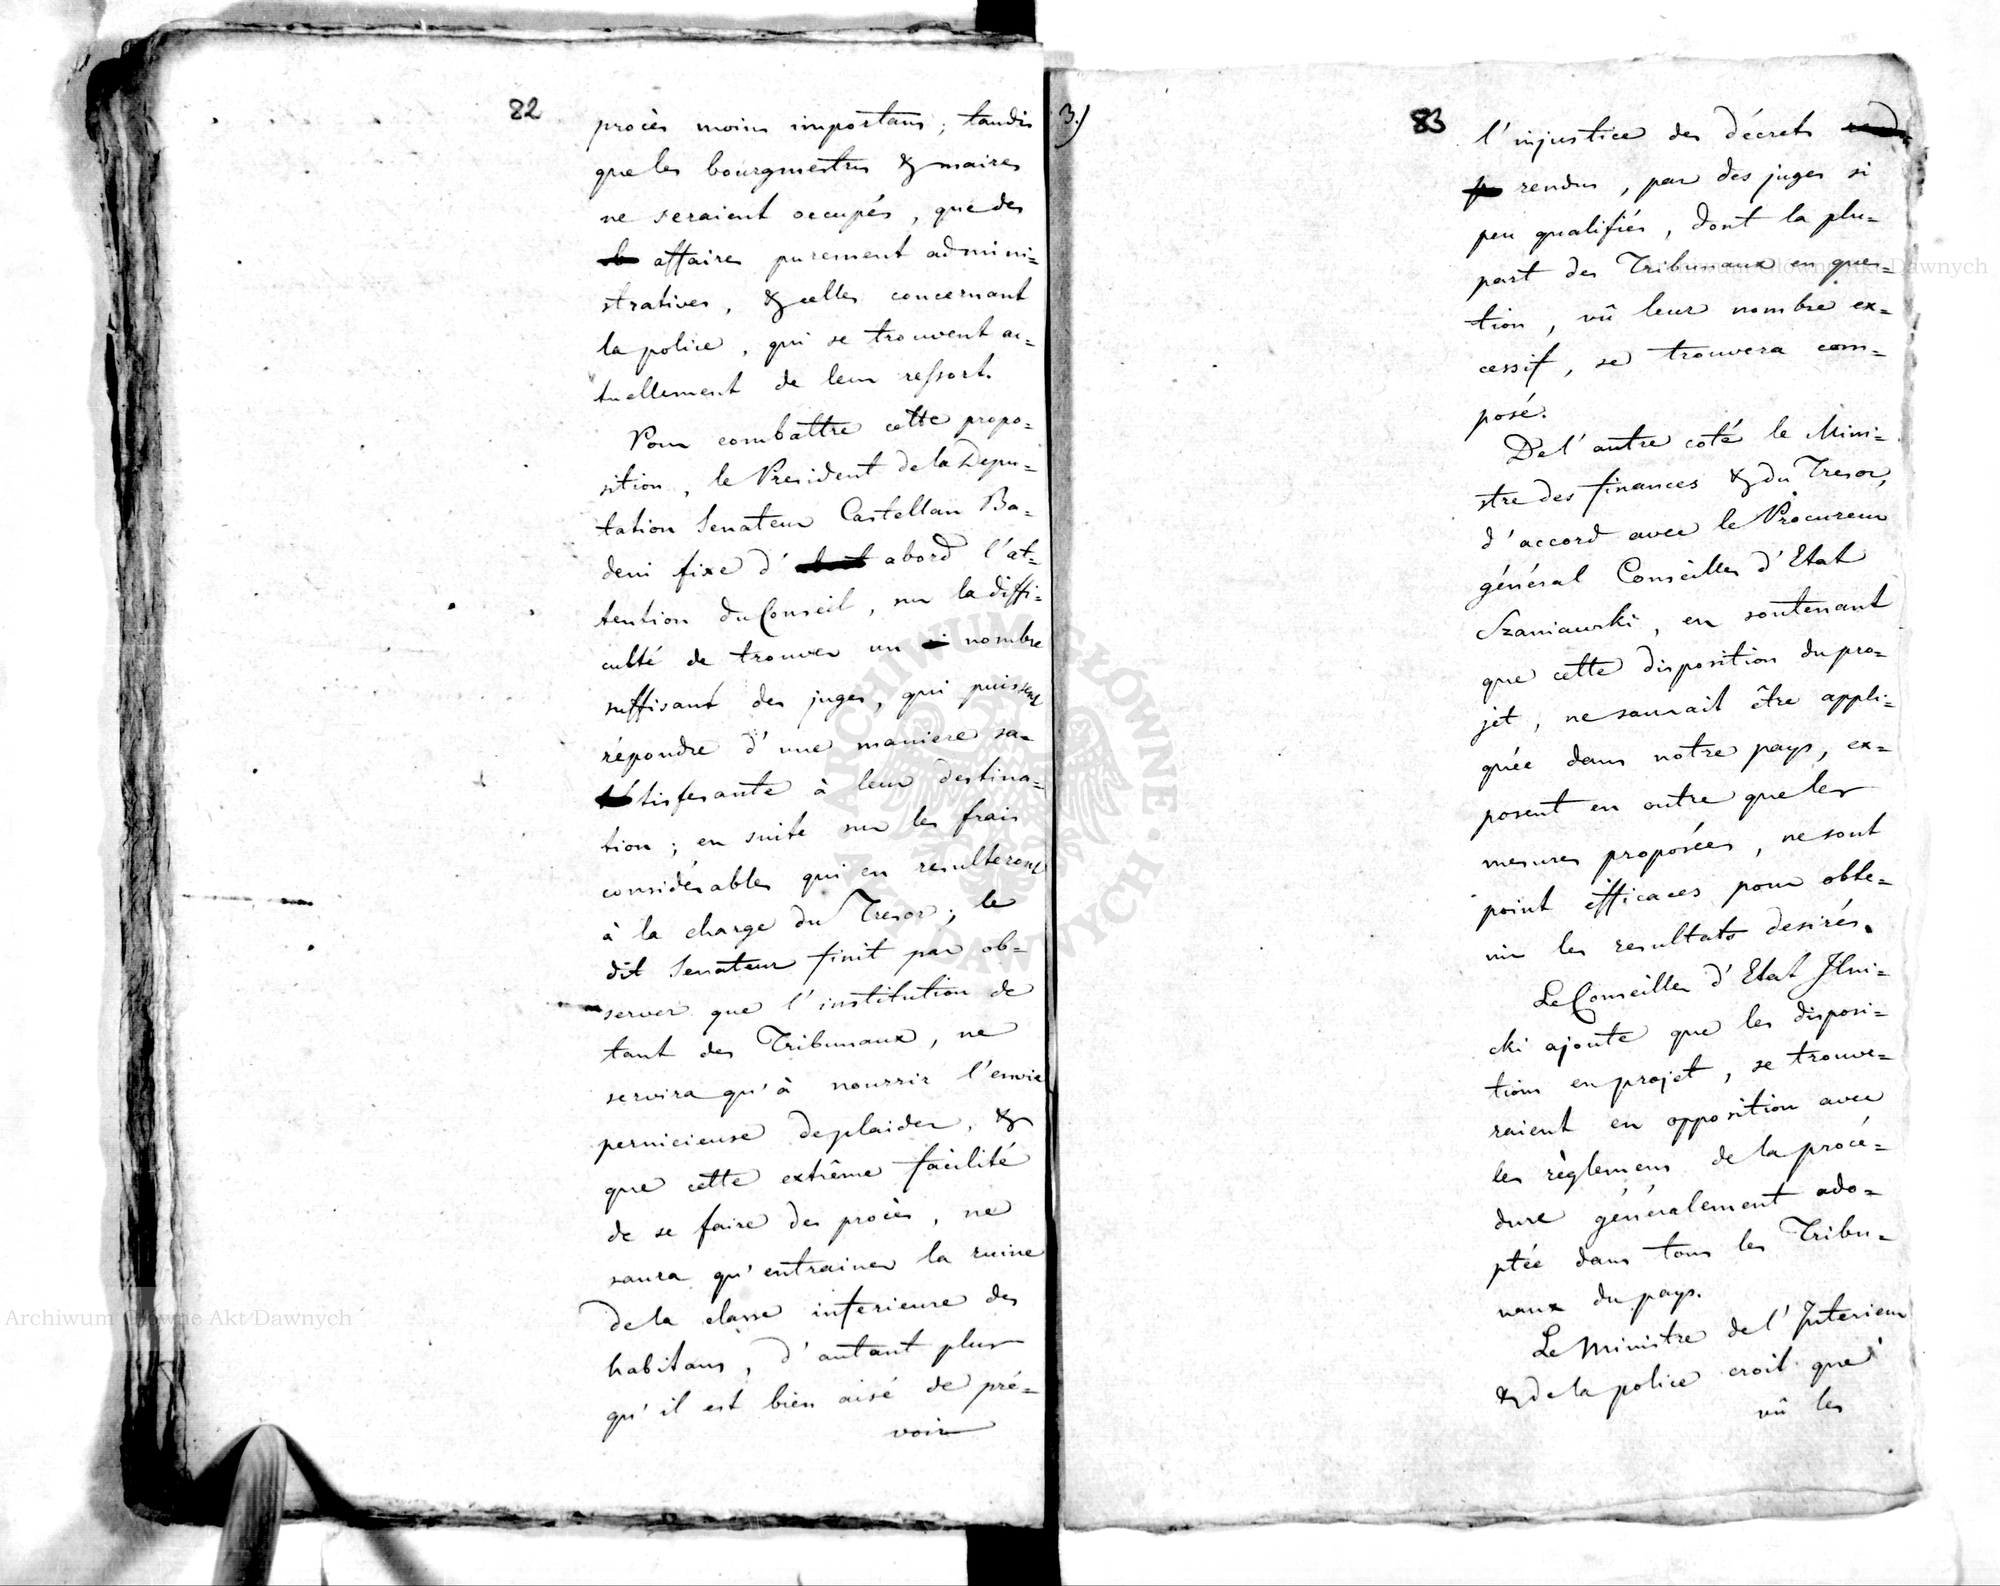 82
procès moins importans; tandis
que les bourgmestres & maires
ne seraient occupés, que des
affaires purement admini=
stratives, & celles concernant
la police, qui se trouvent ac=
tuellement de leur ressort.
Pour combattre cette propo=
sition, le President de la Depu=
tation Senateur Castellan Ba=
deni fixe d'abord l'at=
tention du Conseil, sur la diffi=
culté de trouver un nombre
suffisant des juges, qui puissent
répondre d'une maniere sa=
tisfesante à leur destina=
tion; en suite sur les frais
considérables qui en resulteront
à la charge du Tresor; le
dit Senateur finit par ob=
server que l'institution de
tant des Tribunaux, ne
servira qu'à nourrir l'envie
pernicieuse de plaider, &
que cette extrême facilité
de se faire des procès, ne
saura qu'entrainer la ruine
de la classe inferieure des
habitans, d'autant plus
qu'il est bien aisé de pré=
voir
3./
83
l'injustice des décrets
rendus, par des juges si
peu qualifiés, dont la plu=
part des Tribunaux en ques=
tion, vû leur nombre ex=
cessif, se trouvera com=
posé.
De l'autre coté le Mini=
stre des finances & du Tresor,
d'accord avec le Procureur
général Conseiller d'Etat
Szaniawski, en soutenant
que cette disposition du pro=
jet, ne saurait être appli=
quée dans notre pays, ex=
posent en outre que les
mesures proposées, ne sont
point efficaces pour obte=
nir les resultats desirés.
Le Conseiller d'Etat Jlni=
cki ajoute que les disposi=
tions en projet, se trouve=
raient en opposition avec
les règlemens de la procé=
dure généralement ado=
ptée dans tous les Tribu=
naux du pays.
Le Ministre de l'Jnterieur
& de la police croit que
vû les
ARCHIWUM GŁÓWNE AKT DAWNYCH
Archiwum Główne Akt Dawnych
Archiwum Główne Akt Dawnych